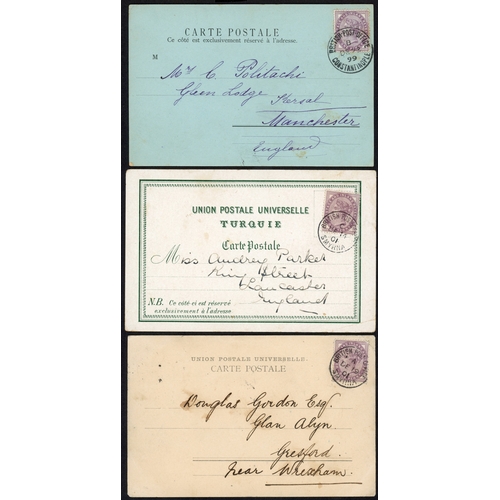 CARTE POSTALE
Ce côté est exclusivement réservé à l'adresse.
BRITISH POST OFFICE
99
CONSTANTINOPLE
M
Mr C. Politachi
Glen Lodge Kersal
Manchester
England
UNION POSTALE UNIVERSELLE
TURQUIE
Carte Postale
BRITISH
01
SMYRNA
Miss Audrey Parker
King Street
Lancaster
England
N.B. Ce côté-ci est réservé
exclusivement à l'adresse
UNION POSTALE UNIVERSELLE
CARTE POSTALE
BRITISH
01
SMYRNA
Douglas Gordon Esq.
Glan Alyn.
Gresford
near Wrexham.